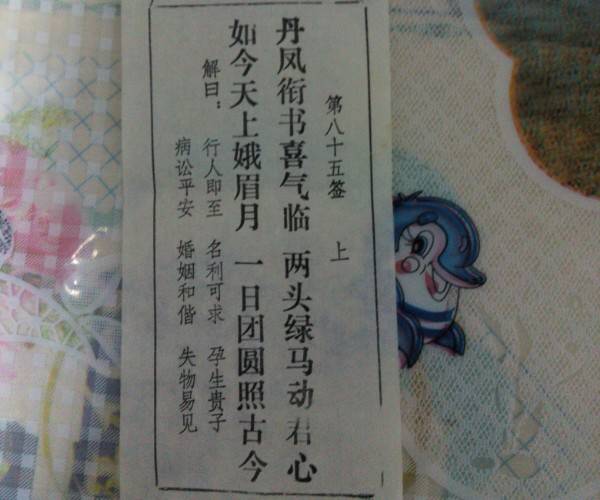 第八十五签 上
丹凤衔书喜气临 两头绿马动君心
如今天上娥眉月 一日团圆照古今
解曰：行人即至 名利可求 孕生贵子
病讼平安 婚姻和偕 失物易见